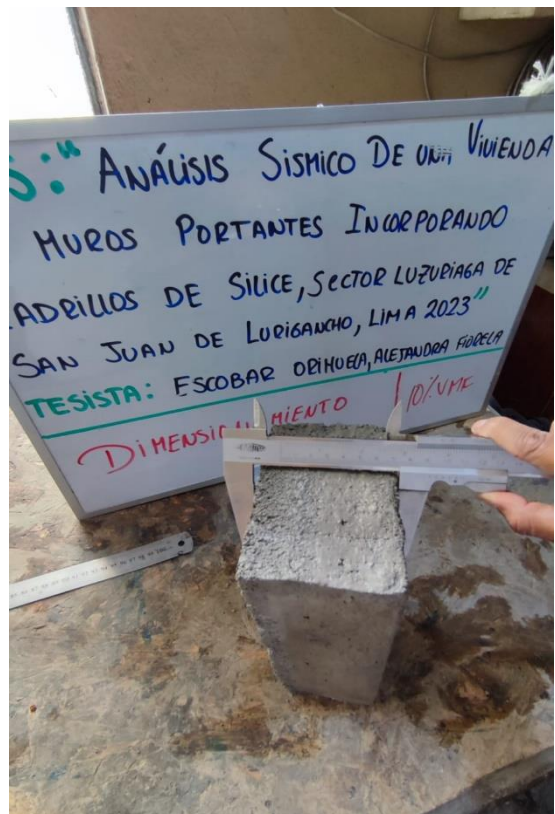 S:" ANÁLISIS SISMICO DE UNA VIVIENDA
MUROS PORTANTES INCORPORANDO
LADRILLOS DE SILICE, SECTOR LUZURIAGA DE
SAN JUAN DE LURIGANCHO, LIMA 2023"
TESISTA: ESCOBAR ORIHUELA, ALEJANDRA FIORELA
DIMENSIONAMIENTO 10%